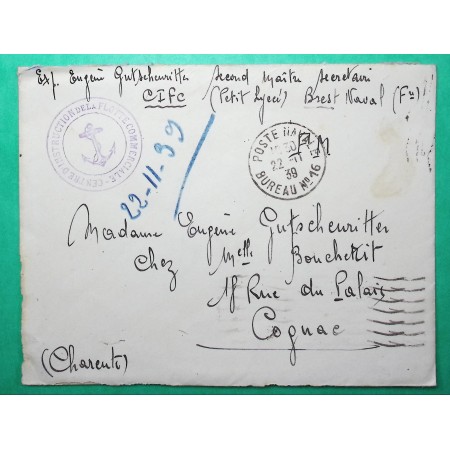 Exp. Eugène Gutschenritter Second Maître Secrétaire
CIFC (Petit Lycée) Brest Naval (Fre)
CENTRE D'INSTRUCTION DE LA FLOTTE COMMERCIALE
22-11-39
FM
POSTE NAVALE
22-11
39
BUREAU Nº 16
Madame Eugène Gutschenritter
Chez Melle Boucherit
18 Rue du Palais
Cognac
(Charente)